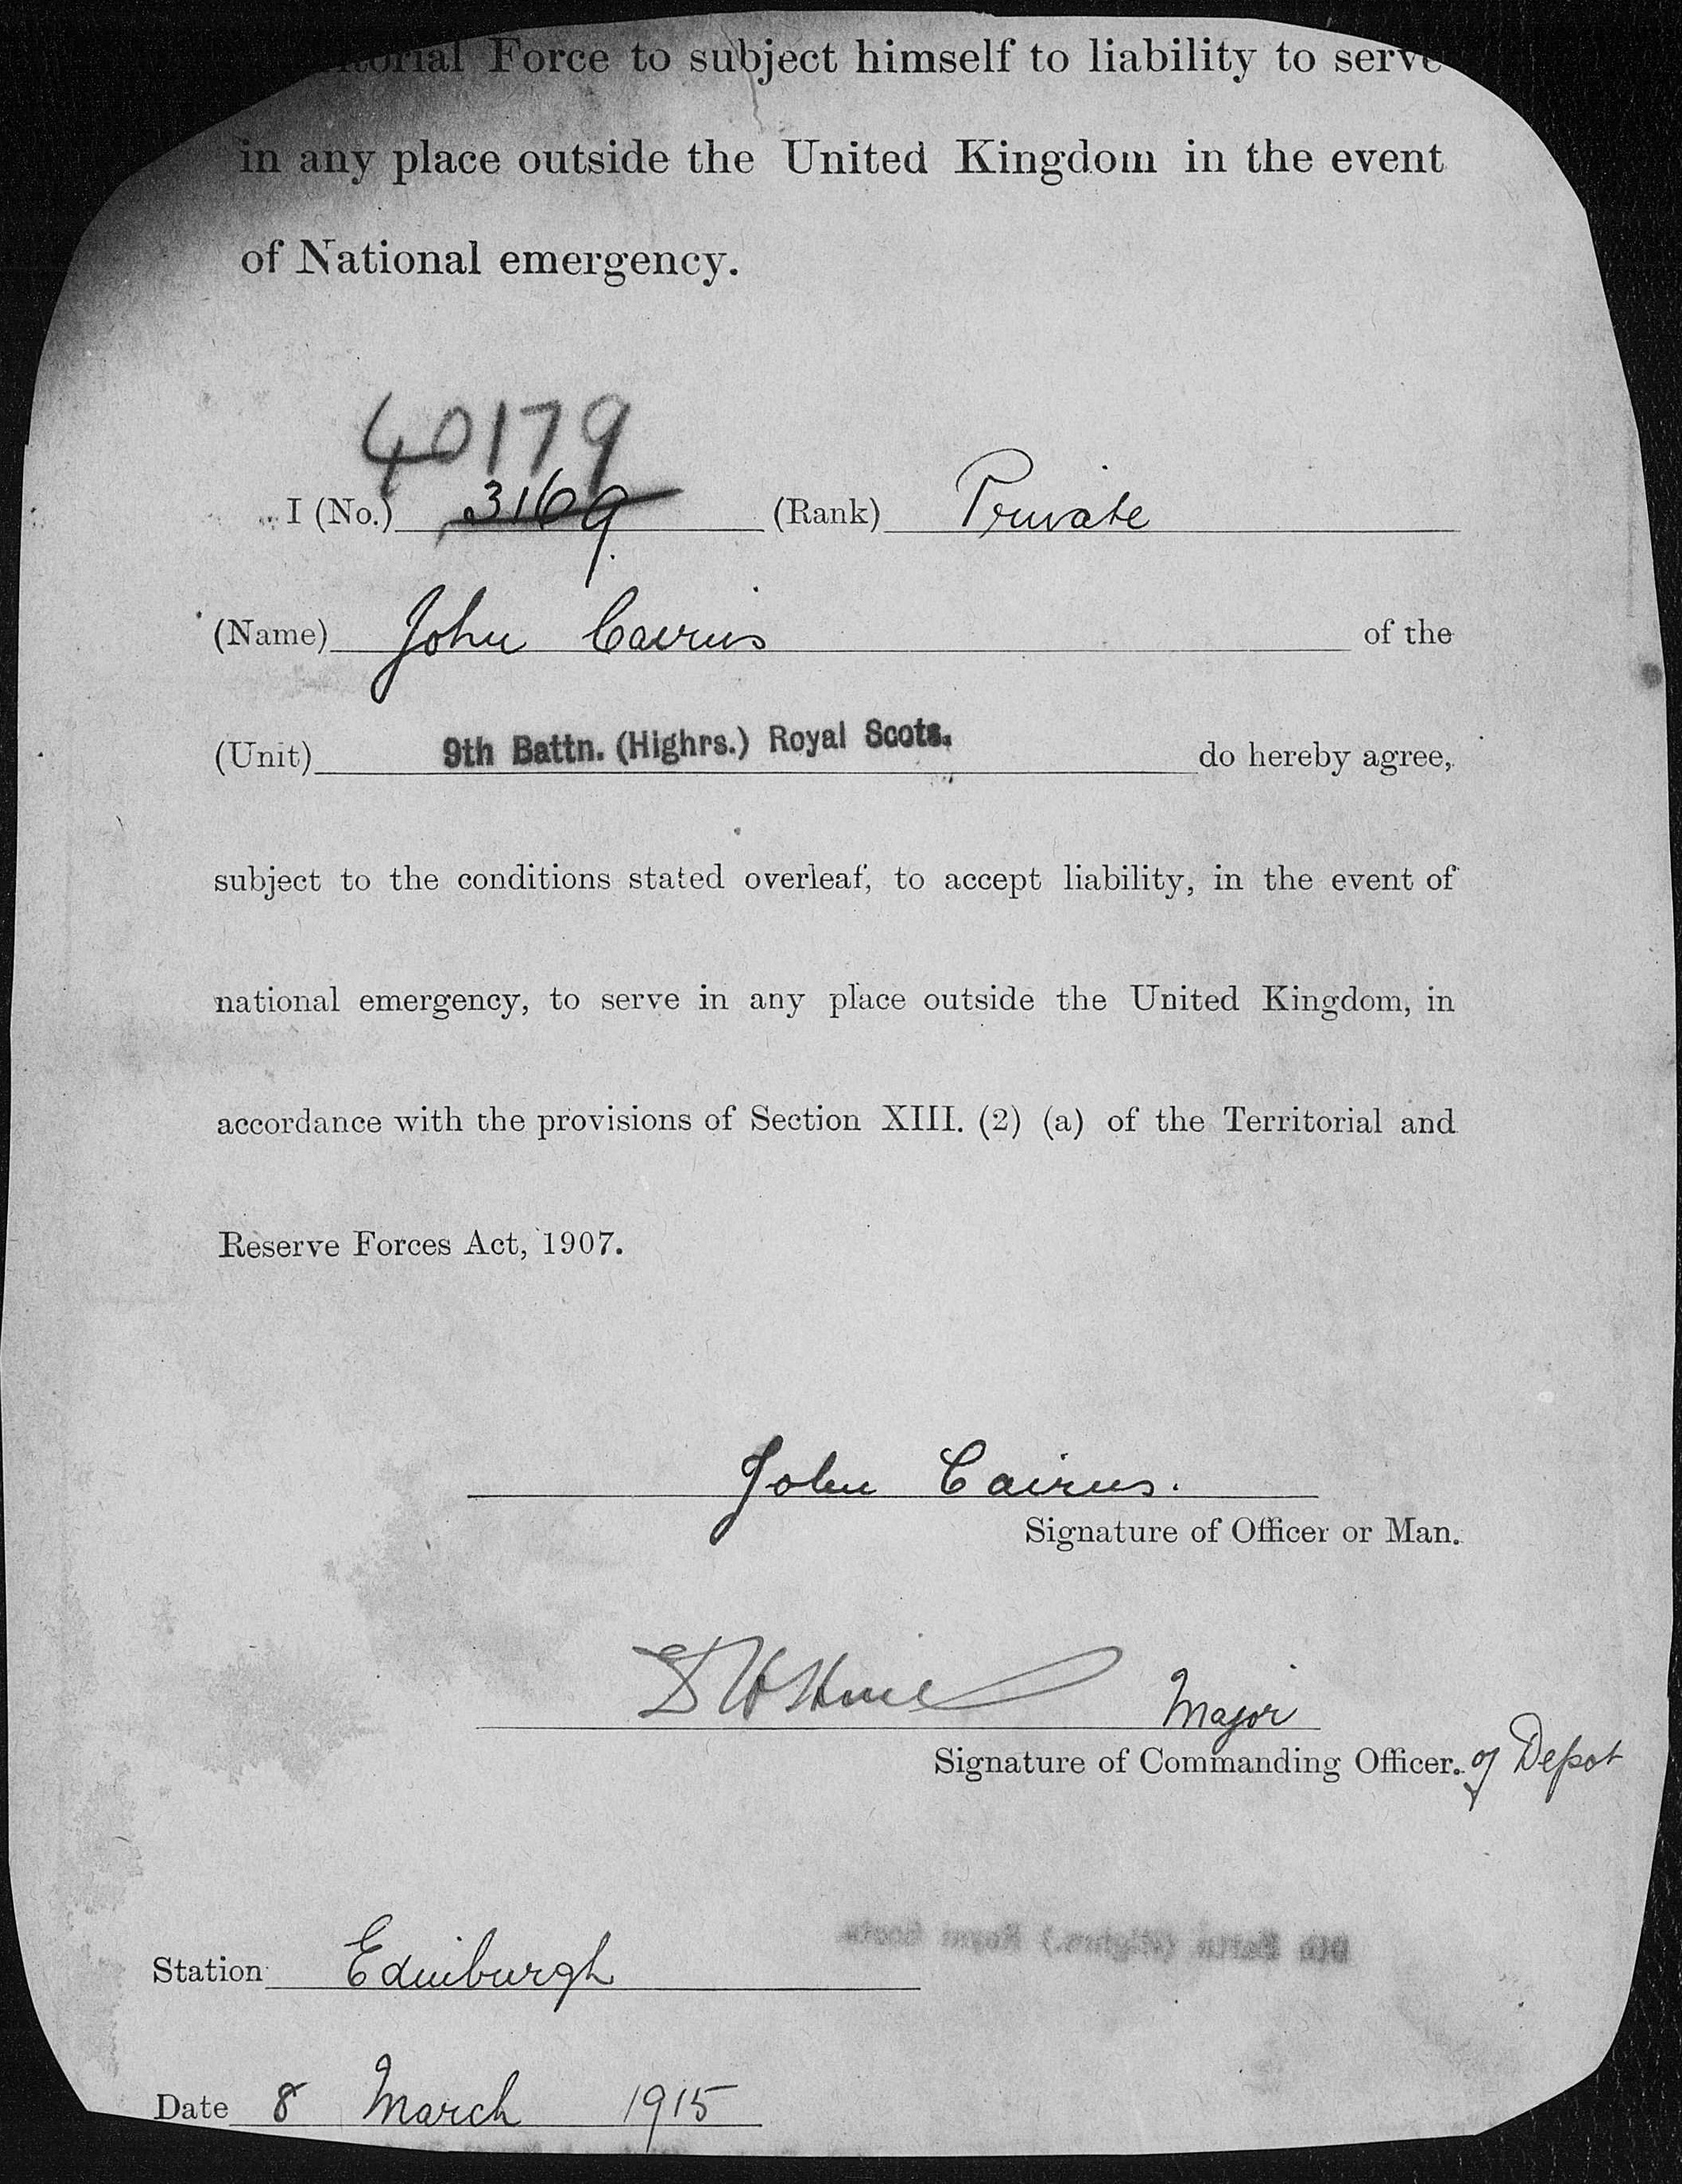 Force to subject himself to liability to serve
in any place outside the United Kingdom in the event
of National emergency.
40179
I (No.) 3169 (Rank) Private
(Name) John Cairns of the
(Unit) 9th Battn. (Highrs.) Royal Scots. do hereby agree,
subject to the conditions stated overleaf, to accept liability, in the event of
national emergency, to serve in any place outside the United Kingdom, in
accordance with the provisions of Section XIII. (2) (a) of the Territorial and
Reserve Forces Act, 1907.
John Cairns.
Signature of Officer or Man.
Major
Signature of Commanding Officer. of Depot
9th Battn. (Highrs.) Royal Scots.
Station Edinburgh
Date 8 March 1915